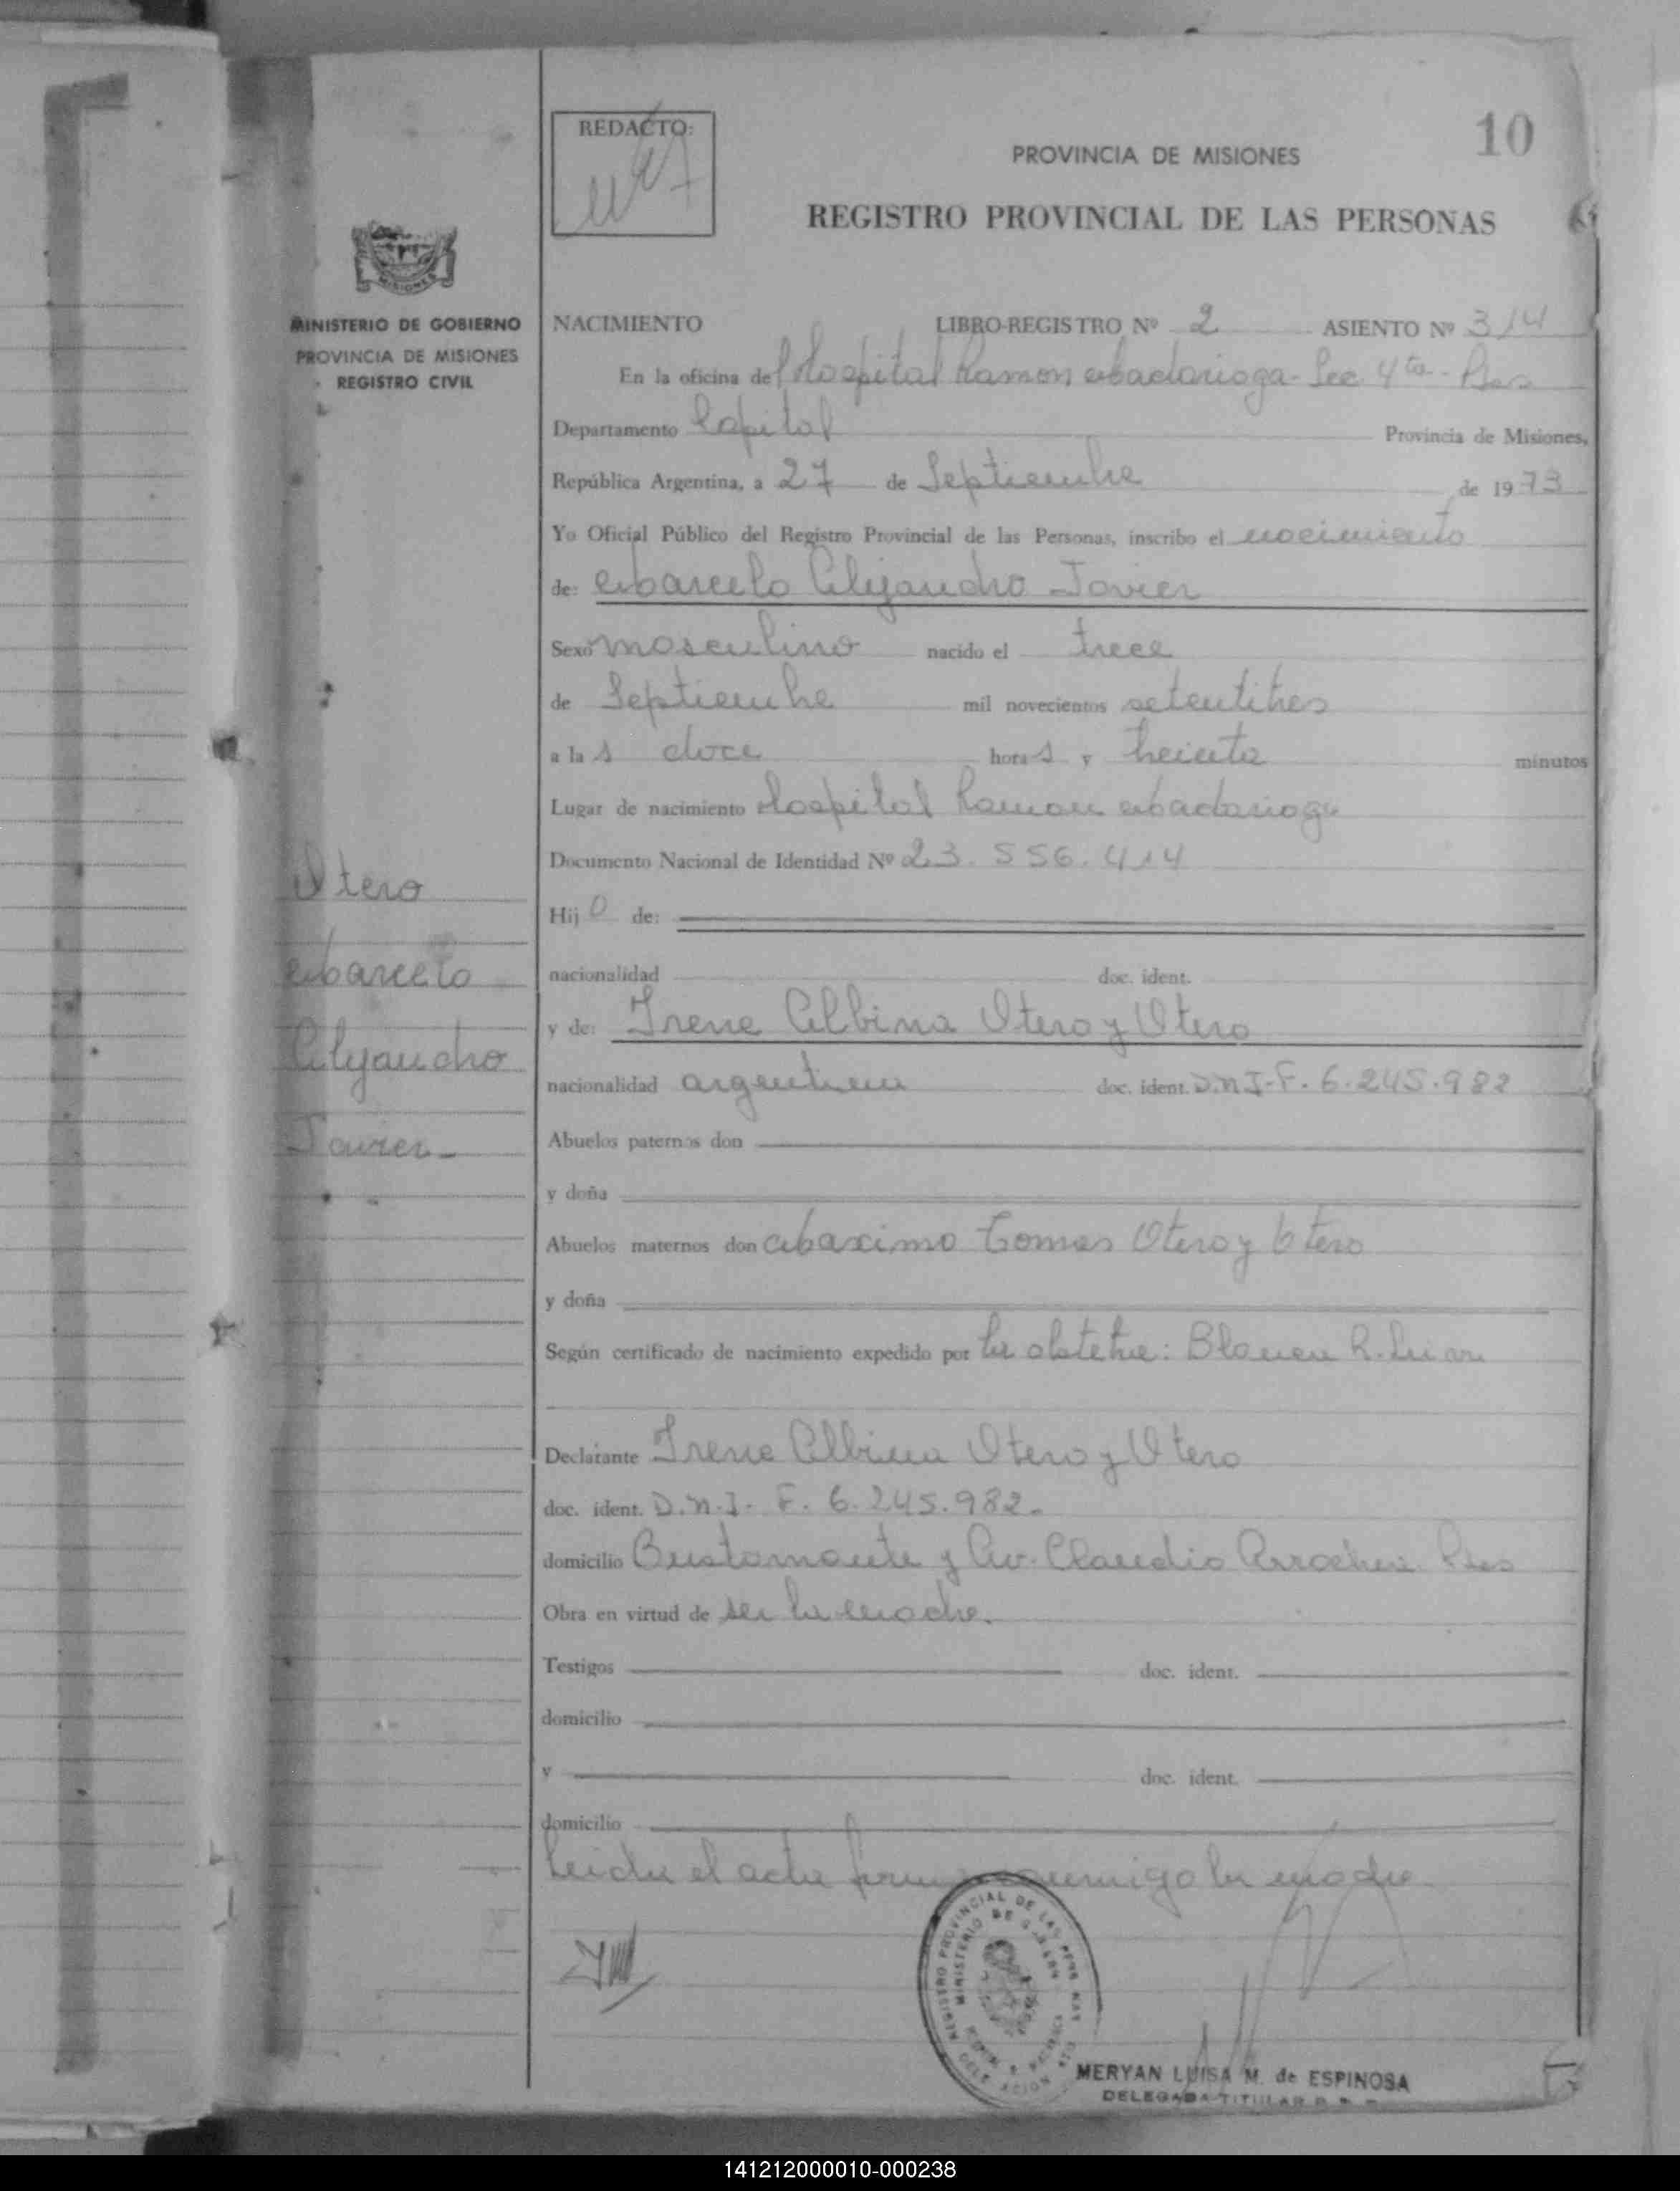 10
REDACTO:
PROVINCIA DE MISIONES
REGISTRO PROVINCIAL DE LAS PERSONAS
MISIONES
MINISTERIO DE GOBIERNO
PROVINCIA DE MISIONES
REGISTRO CIVIL
NACIMIENTO LIBRO-REGISTRO Nº 2 ASIENTO Nº 314
En la oficina del Hospital Ramon Madariaga - Sec. 4ta - Pdas
Departamento Capital Provincia de Misiones,
República Argentina, a 27 de Septiembre de 1973
Yo Oficial Público del Registro Provincial de las Personas, inscribo el nacimiento
de: Marcelo Alejandro Javier
Sexo masculino nacido el trece
de Septiembre mil novecientos setentitres
a la s doce hora s y treinta minutos
Lugar de nacimiento Hospital Ramon Madariaga
Documento Nacional de Identidad Nº 23.556.414
Hij o de:
nacionalidad doc. ident.
y de: Irene Albina Otero y Otero
nacionalidad argentina doc. ident. D.N.I-F. 6.245.982
Abuelos paternos don
y doña
Abuelos maternos don Maximo Tomas Otero y Otero
y doña
Según certificado de nacimiento expedido por la obstetra: Blanca R.
Declarante Irene Albina Otero y Otero
doc. ident. D.N.I. F. 6.245.982.
domicilio Bustamante y Av. Claudio Arrechea Pdas
Obra en virtud de ser la madre.
Testigos doc. ident.
domicilio
y doc. ident.
domicilio
Leida el acta firma conmigo la madre.
Otero
Marcelo
Alejandro
Javier
REGISTRO PROVINCIAL DE LAS PERSONAS
MINISTERIO DE GOBIERNO
MERYAN LUISA M. de ESPINOSA
DELEGADA TITULAR
141212000010-000238